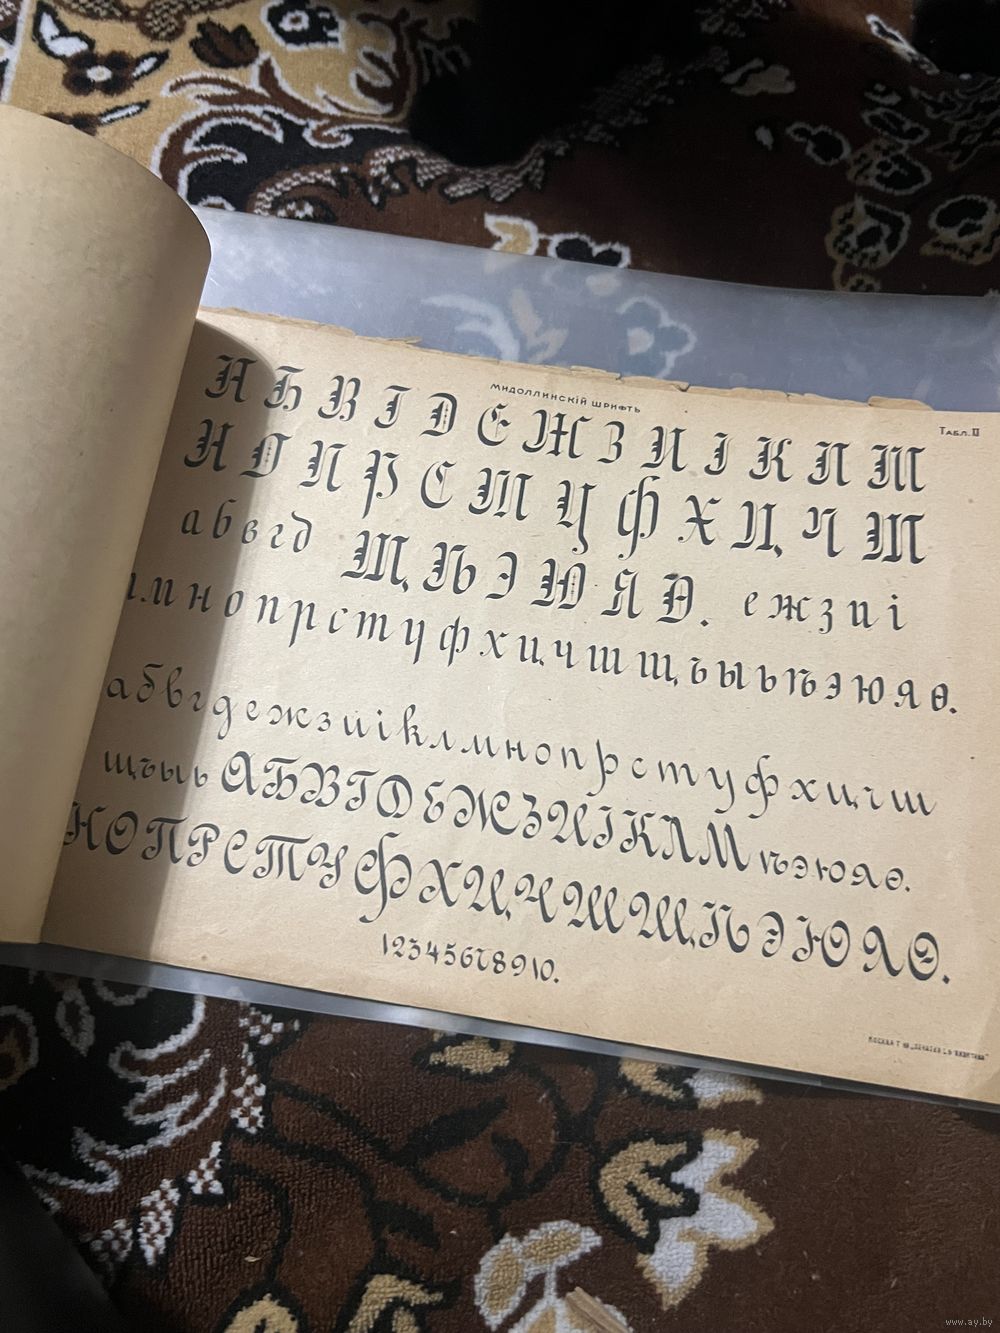 Мидоллинскій шрифтъ
Табл. II
А Б В Г Д Е Ж З И І К Л М
Н О П Р С Т У Ф Х Ц Ч Ш
а б в г д Щ Ѣ Э Ю Я Ѳ. е ж з и і
л м н о п р с т у ф х ц ч ш щ ъ ы ь ѣ э ю я ѳ.
а б в г д е ж з и і к л м н о п р с т у ф х ц ч ш
щ ъ ы ь А Б В Г Д Е Ж З И І К Л М ѣ э ю я ѳ.
Н О П Р С Т У Ф Х Ц Ч Ш Щ Ѣ Э Ю Я Ѳ.
1 2 3 4 5 6 7 8 9 10.
Москва
www.ay.by